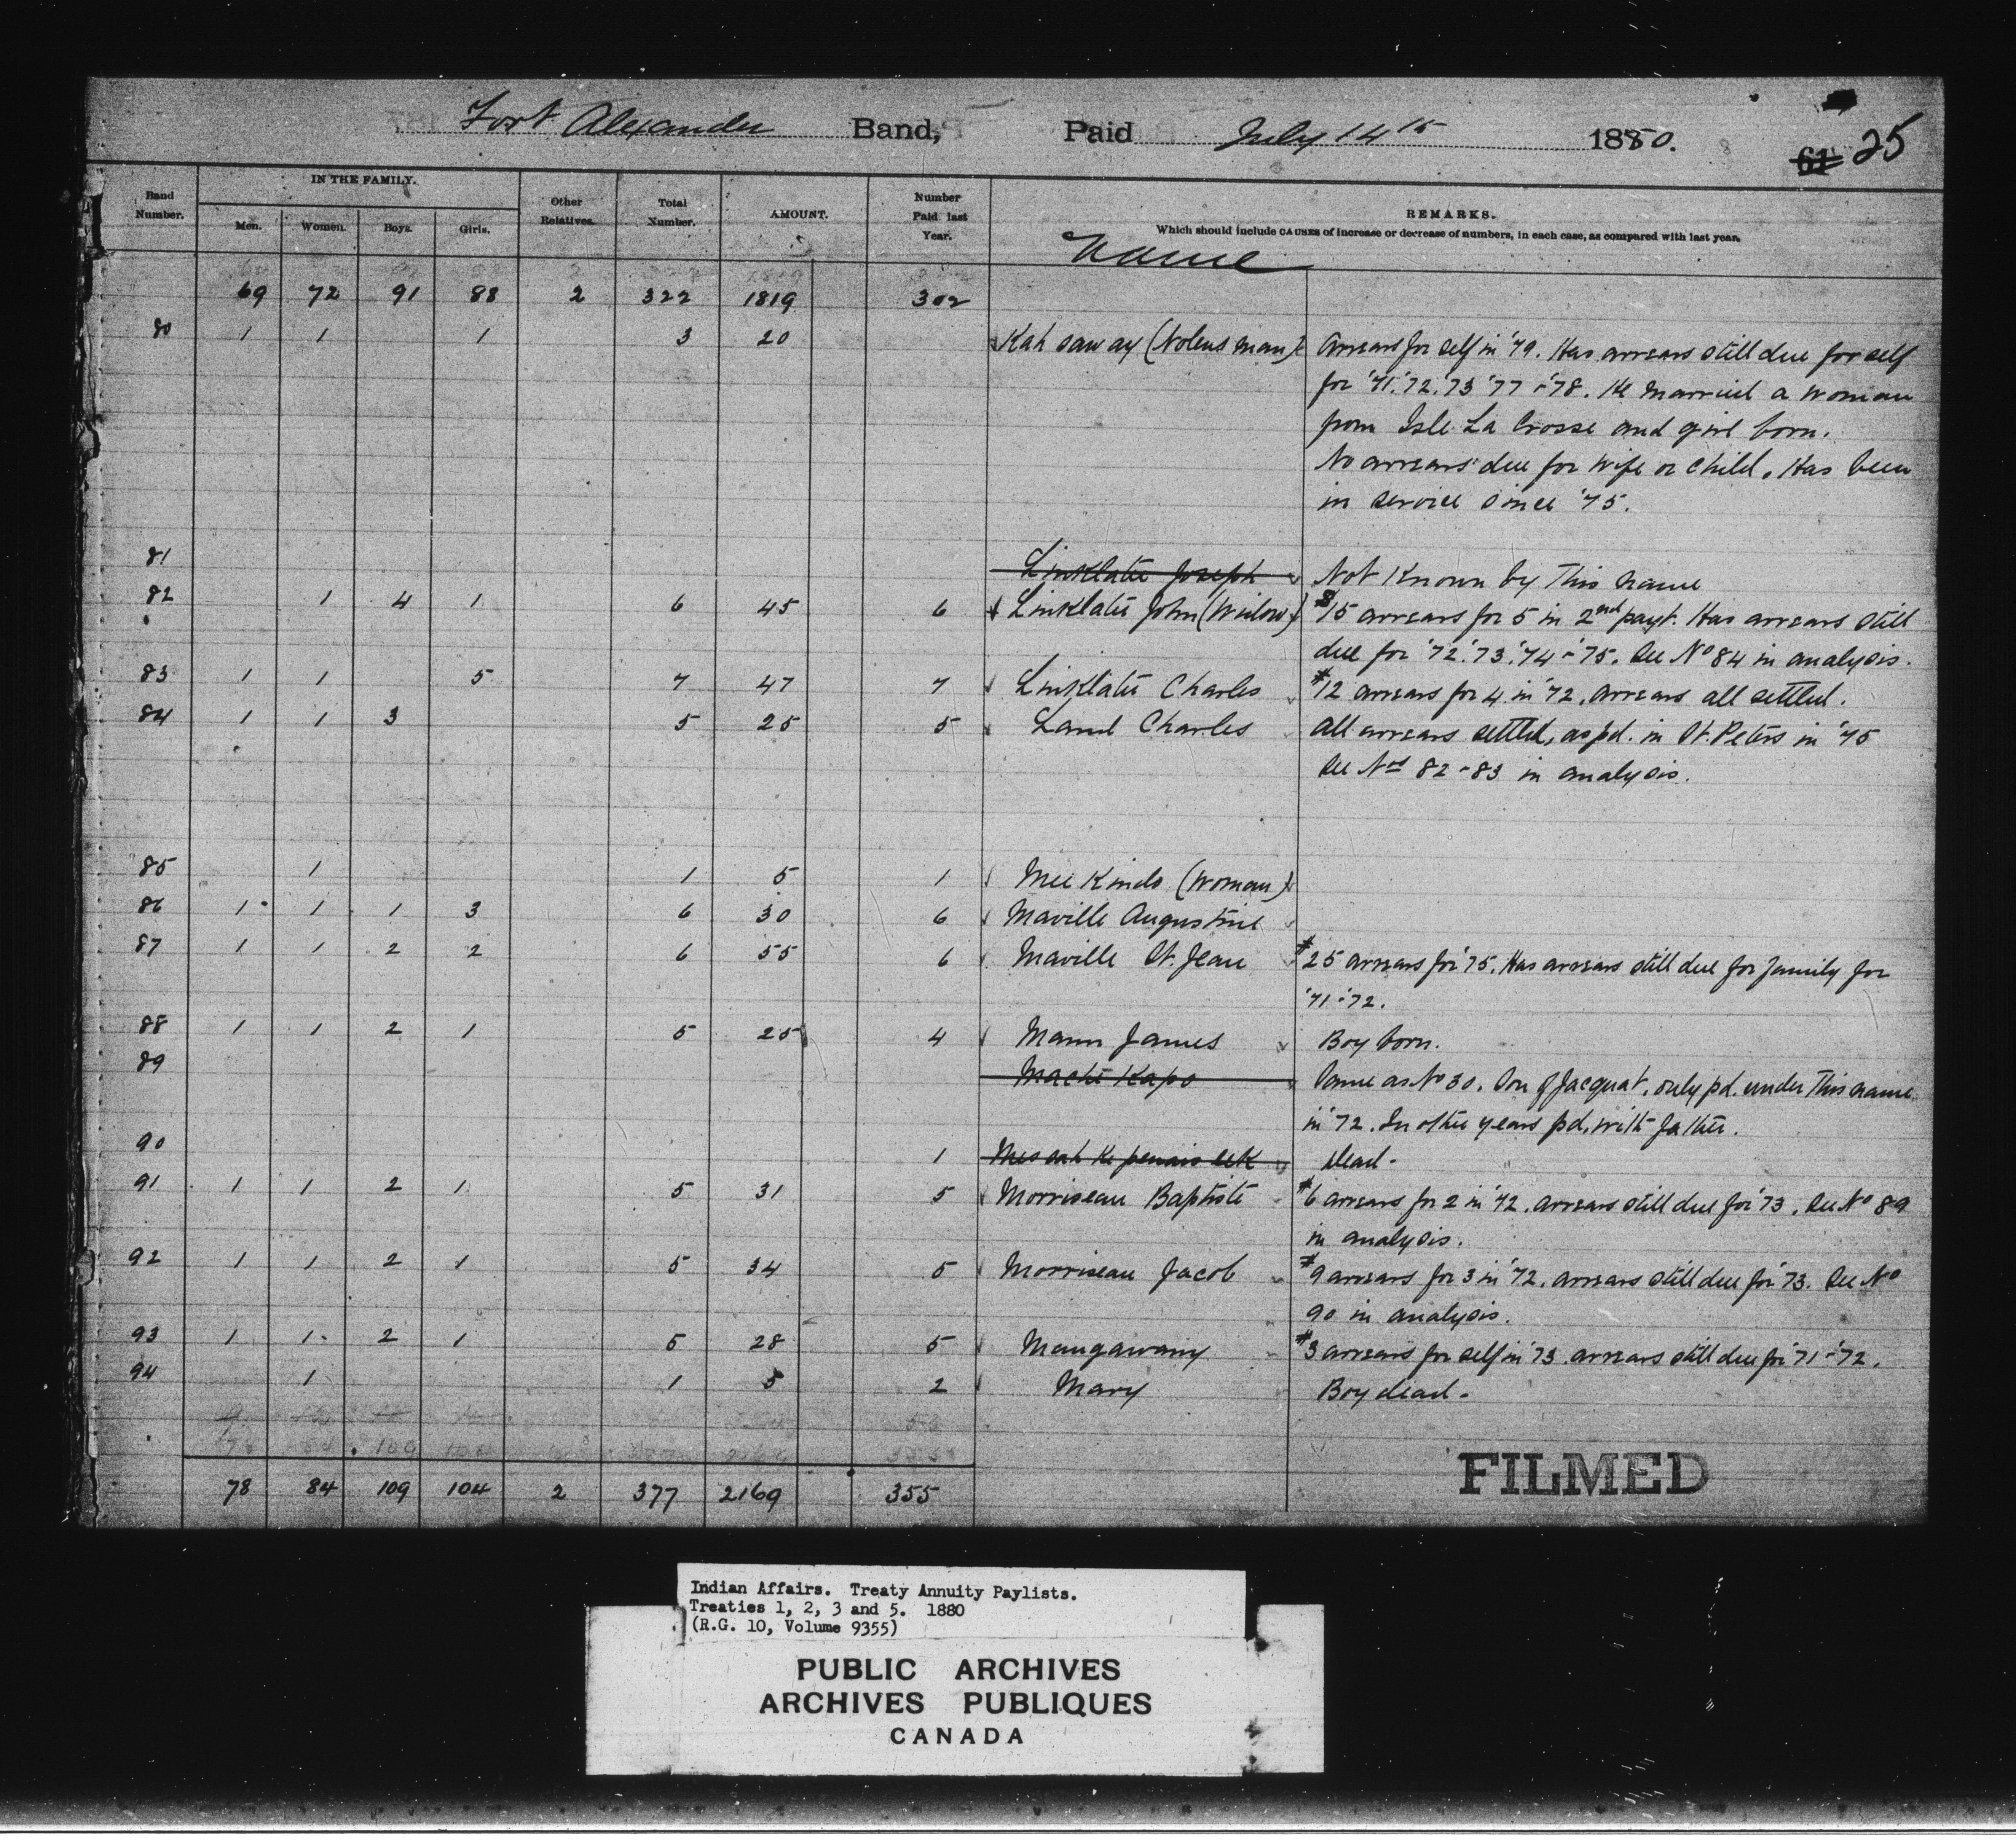 Fort Alexander Band, Paid July 14 15 1880. 61 25
Band Number. IN THE FAMILY. Men. Women. Boys. Girls. Other Relatives. Total Number. AMOUNT. Number Paid last Year. REMARKS.
Which should include CAUSES of increase or decrease of numbers, in each case, as compared with last year.
Name
69 72 91 88 2 322 1819 302
80 1 1 1 3 20 Kah saway (Nolens man) Arrears for self in '79. Has arrears still due for self
for '71. '72. '73 '77 - '78. He married a woman
from Isle La Crosse and girl born.
No arrears due for wife or child. Has been
in service since '75.
81 Linklater Joseph Not Known by This name
82 1 4 1 6 45 6 Linklater John (Widow) $15 arrears for 5 in 2nd payt. Has arrears still
due for '72. '73. '74 - '75. See No 84 in analysis.
83 1 1 5 7 47 7 Linklater Charles #12 arrears for 4 in '72. Arrears all settled.
84 1 1 3 5 25 5 Laml Charles All arrears settled, as pd. in St. Peters in '75
See Nos 82 - 83 in analysis.
85 1 1 5 1 Mee Kinds (Woman)
86 1 1 1 3 6 30 6 Maville Augustine
87 1 1 2 2 6 55 6 Maville St. Jean #25 arrears for '75. Has arrears still due for family for
'71 - '72.
88 1 1 2 1 5 25 4 Mann James Boy born.
89 Mache Kapo Same as No 30. Son of Jacquat, only pd. under This name
in '72. In other years pd. with father.
90 1 Dead -
91 1 1 2 1 5 31 5 Morriseau Baptiste #6 arrears for 2 in '72. Arrears still due for '73. See No 89
in analysis.
92 1 1 2 1 5 34 5 Morriseau Jacob #9 arrears for 3 in '72. Arrears still due for '73. See No
90 in analysis.
93 1 1 2 1 5 28 5 Maugawany #3 arrears for self in '73 arrears still due for '71 - '72.
94 1 1 5 2 Mary Boy dead -
78 84 109 104 2 377 2169 355
FILMED
Indian Affairs. Treaty Annuity Paylists.
Treaties 1, 2, 3 and 5. 1880
(R.G. 10, Volume 9355)
PUBLIC ARCHIVES
ARCHIVES PUBLIQUES
CANADA